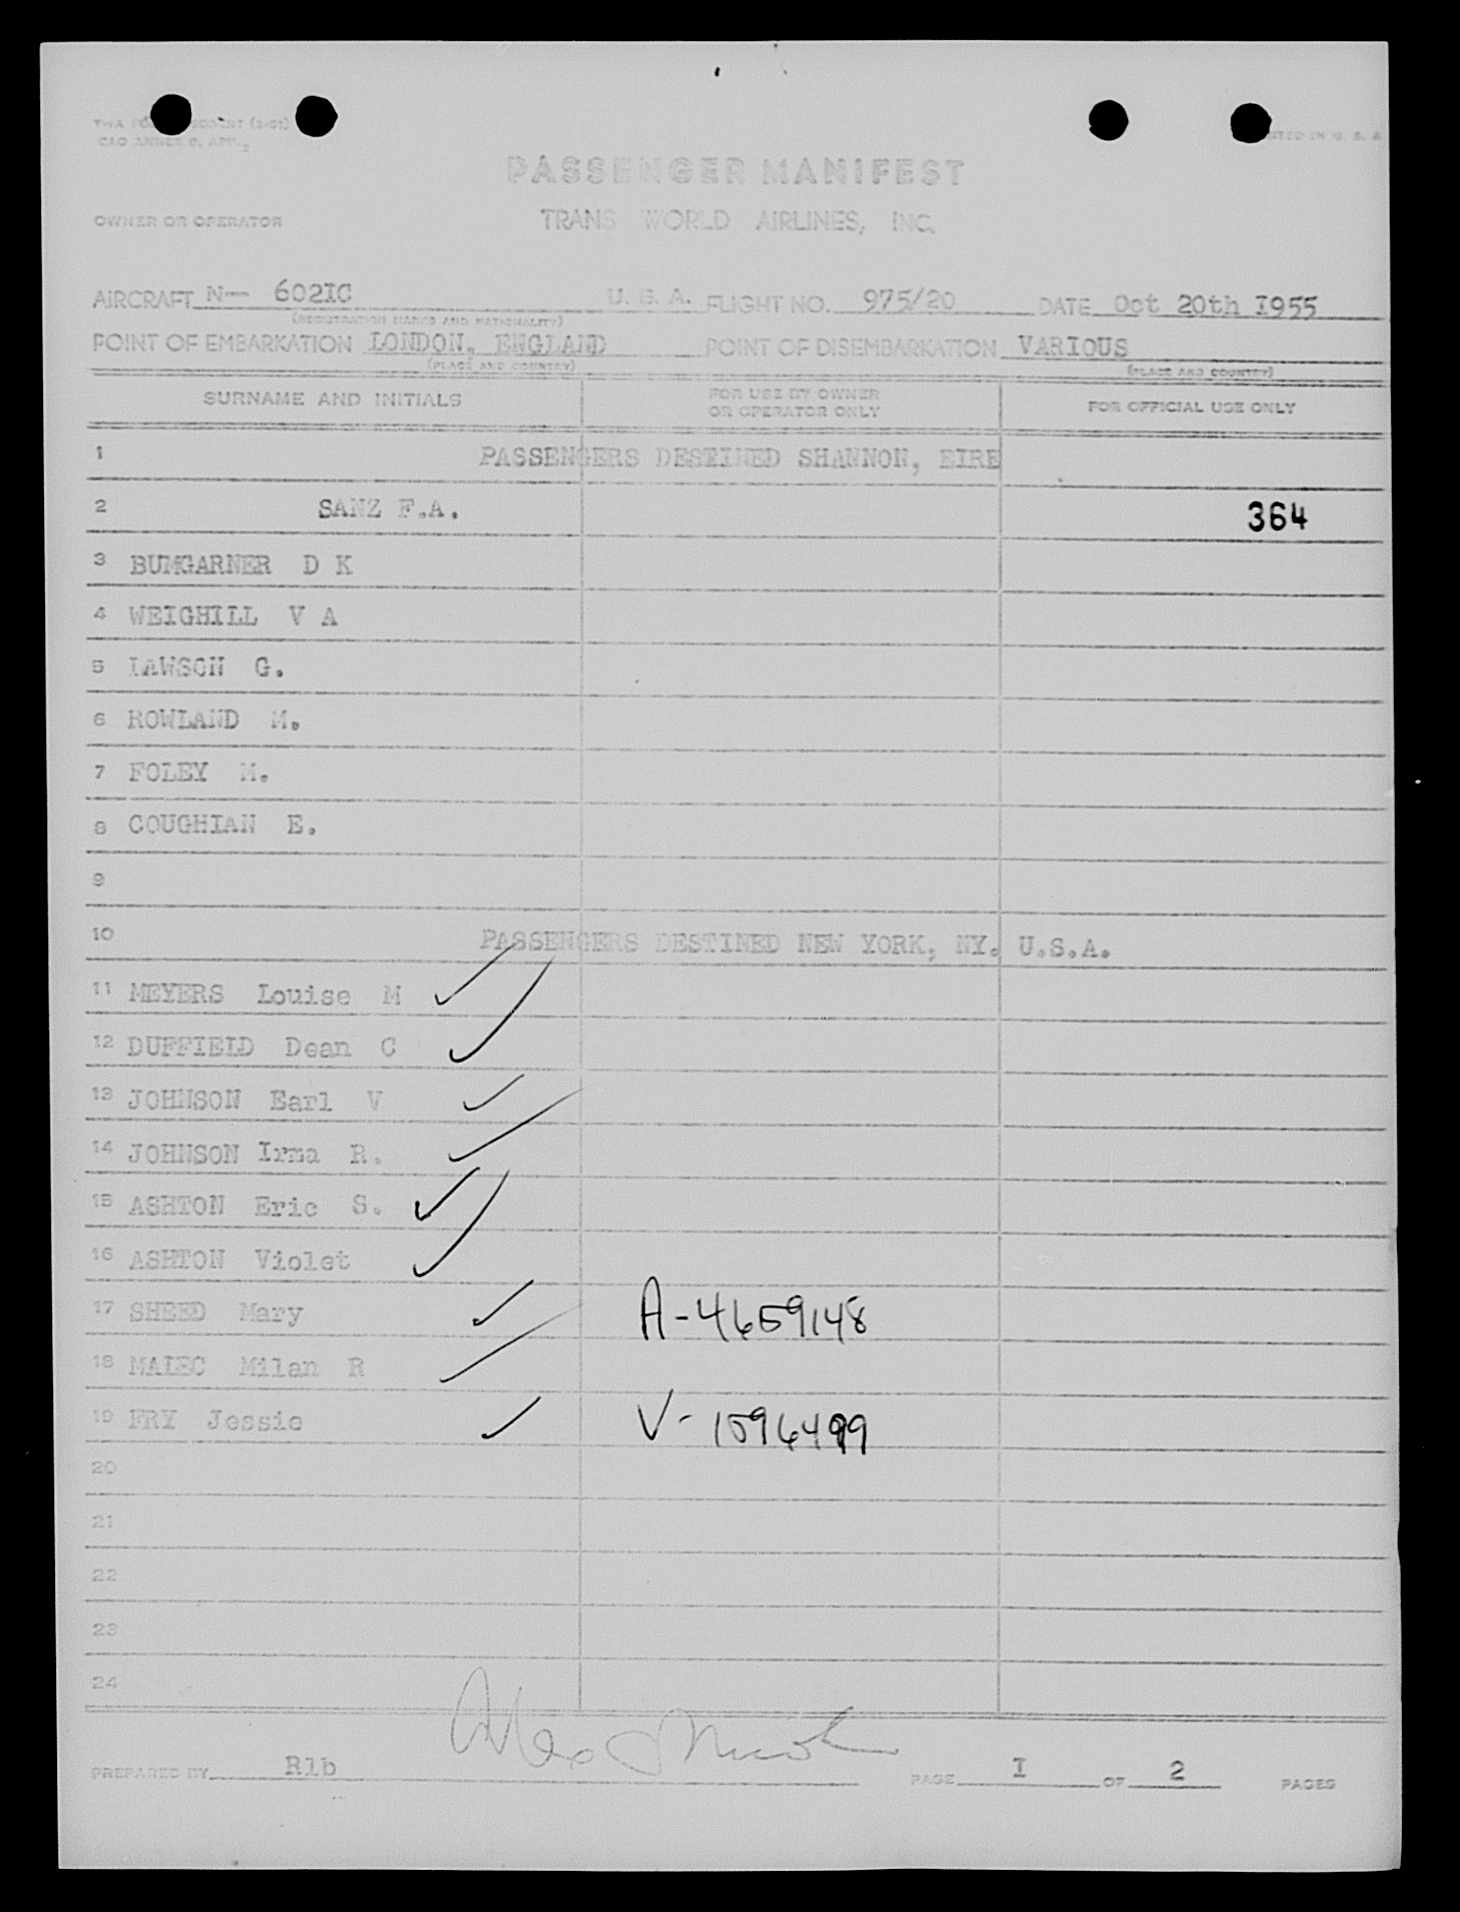 PRINTED IN U. S. A.
PASSENGER MANIFEST
OWNER OR OPERATOR TRANS WORLD AIRLINES, INC.
AIRCRAFT N— 602IC U. S. A. FLIGHT NO. 975/20 DATE Oct 20th I955
(REGISTRATION MARKS AND NATIONALITY)
POINT OF EMBARKATION LONDON, ENGLAND POINT OF DISEMBARKATION VARIOUS
(PLACE AND COUNTRY) (PLACE AND COUNTRY)
SURNAME AND INITIALS FOR USE BY OWNER OR OPERATOR ONLY FOR OFFICIAL USE ONLY
1 PASSENGERS DESTINED SHANNON, EIRE
2 SANZ F.A. 364
3 BUMGARNER D K
4 WEIGHILL V A
5 LAWSON G.
6 ROWLAND M.
7 FOLEY M.
8 COUGHIAN E.
9
10 PASSENGERS DESTINED NEW YORK, NY. U.S.A.
11 MEYERS Louise M
12 DUFFIELD Dean C
13 JOHNSON Earl V
14 JOHNSON Irma R.
15 ASHTON Eric S.
16 ASHTON Violet
17 SHEED Mary A-4659148
18 MALEC Milan R
19 FRY Jessie V-1596499
20
21
22
23
24
PREPARED BY R1b PAGE I OF 2 PAGES